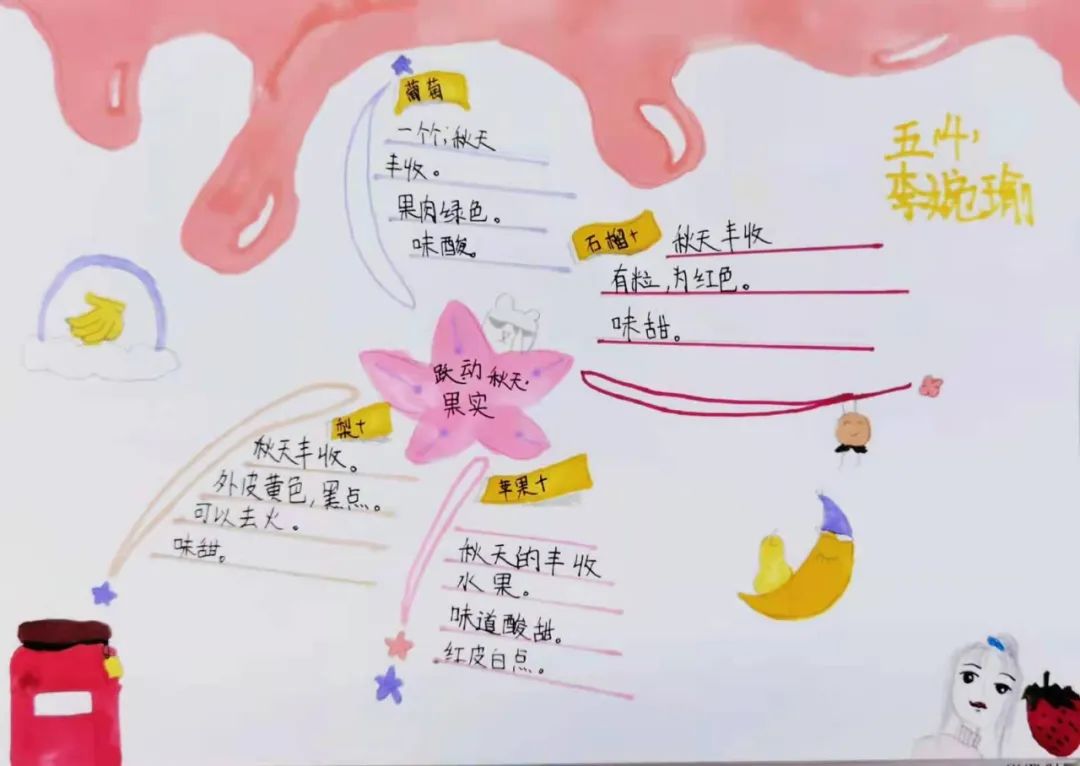 葡萄
一个个;秋天
丰收。
果肉绿色。
味酸。
五(4)
李婉瑜
石榴+
秋天丰收
有粒,为红色。
味甜。
跃动秋天.
果实
梨+
秋天丰收。
外皮黄色,黑点。
可以去火。
味甜。
苹果+
秋天的丰收
水果。
味道酸甜。
红皮白点。